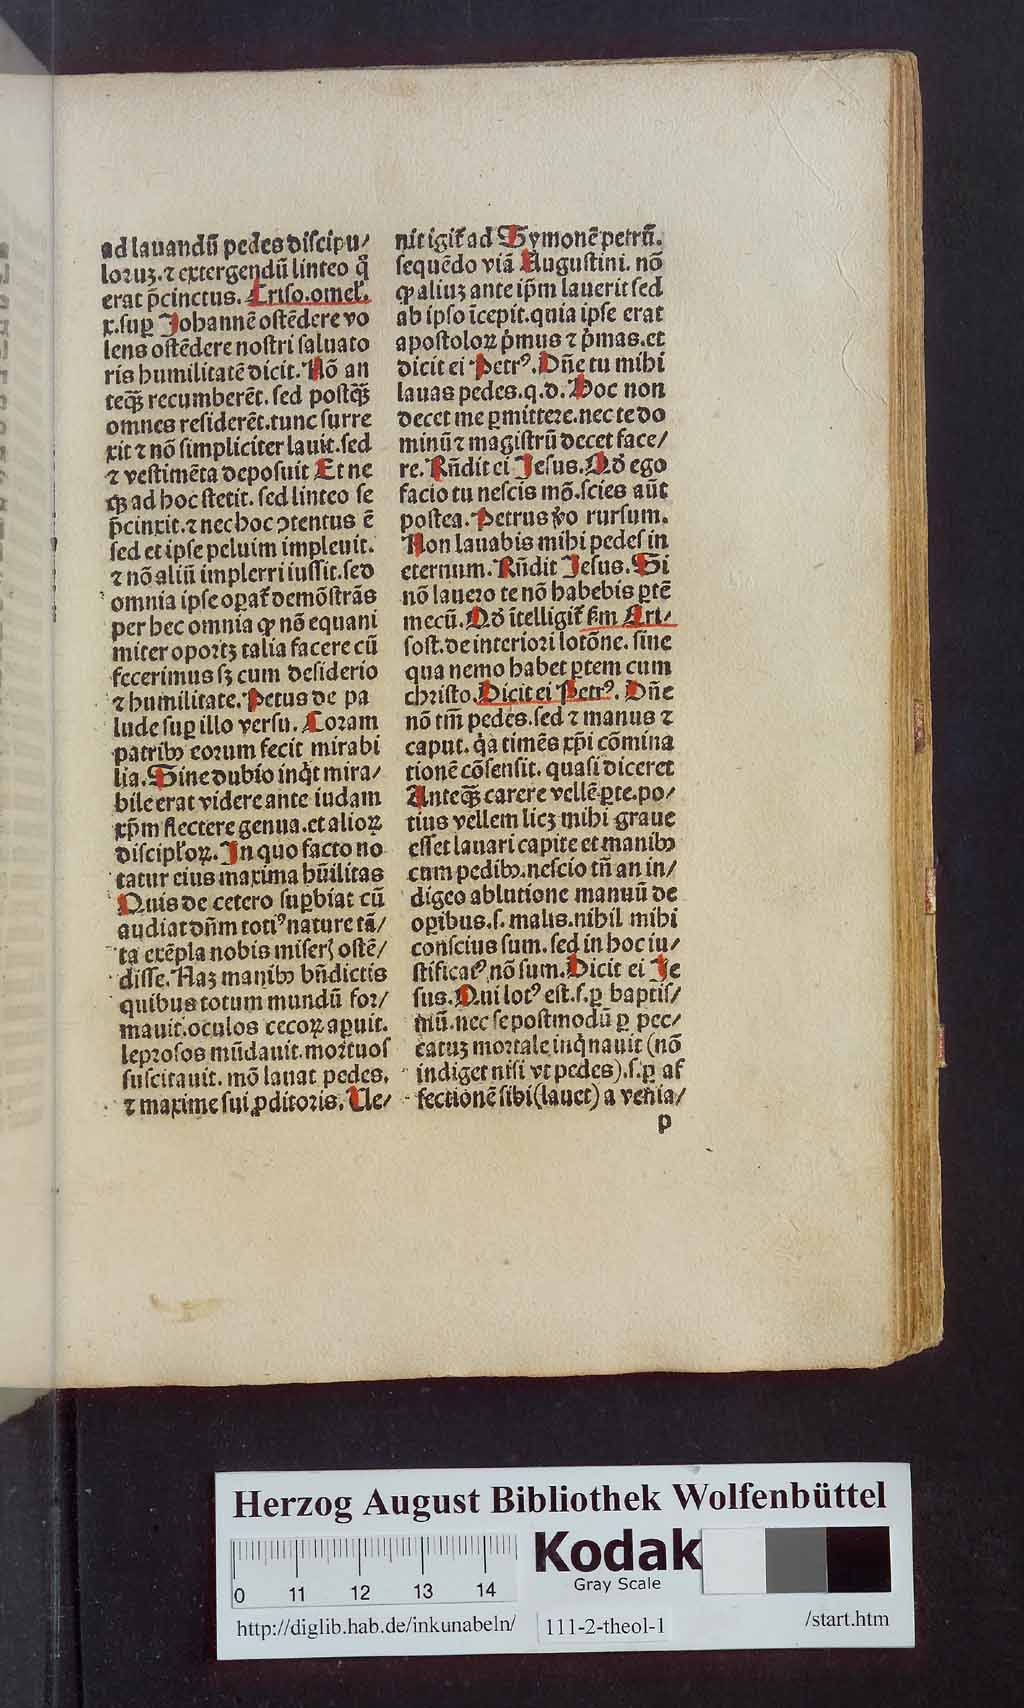 ad lauandū pedes discipu/
loruꝫ. ⁊ extergendū linteo q̄
erat p̄cinctus. Criso. omel'.
x. suꝑ Johannē ostēdere vo
lens ostēdere nostri saluato
ris humilitatē dicit. Nō an
teqȝ̄ recumberēt. sed postqȝ̄
omnes residerēt. tunc surre
xit ⁊ nō simpliciter lauit. sed
⁊ vestimēta deposuit Et ne
qȝ ad hoc stetit. sed linteo se
p̄cinxit. ⁊ nec hoc ↄtentus ē
sed et ipse peluim impleuit.
⁊ nō aliū implerri iussit. sed
omnia ipse oꝑat̄ demōstrās
per hec omnia ꝙ nō equani
miter oportꝫ talia facere cū
fecerimus sꝫ cum desiderio
⁊ humilitate. Petus de pa
lude suꝑ illo versu. Coram
patribꝰ eorum fecit mirabi
lia. Sine dubio inq̇t mira/
bile erat videre ante iudam
xp̄m flectere genua. et alioꝝ
discipl'oꝝ. In quo facto no
tatur eius maxima hūilitas
Quis de cetero suꝑbiat cū
audiat dn̄m totiꝰ nature tā/
ta exēpla nobis miserꝭ ostē/
disse. Naꝫ manibꝰ bn̄dictis
quibus totum mundū for/
mauit. oculos cecoꝝ aꝑuit.
leprosos mūdauit. mortuos
suscitauit. mō lauat pedes.
⁊ maxime sui ꝓditoris. Ue/
nit igit̄ ad Symonē petrū.
sequēdo viā Augustini. nō
ꝙ aliuꝫ ante ip̄m lauerit sed
ab ipso īcepit. quia ipse erat
apostoloꝝ ṗmus ⁊ ṗmas. et
dicit ei Petrꝰ. Dn̄e tu mihi
lauas pedes. q. d. Hoc non
decet me ꝑmittere. nec te do
minū ⁊ magistrū decet face/
re. Rn̄dit ei Jesus. Qd̄ ego
facio tu nescis mō. scies aūt
postea. Petrus v̄o rursum.
Non lauabis mihi pedes in
eternum. Rn̄dit Jesus. Si
nō lauero te nō habebis ꝑtē
mecū. Qd̄ ītelligit̄ ẜm Cri/
sost. de interiori lotōne. sine
qua nemo habet ꝑtem cum
christo. Dicit ei Petrꝰ. Dn̄e
nō tm̄ pedes. sed ⁊ manus ⁊
caput. q̇a timēs xp̄i cōmina
tionē cōsensit. quasi diceret
Anteqȝ̄ carere vellē ꝑte. po/
tius vellem licꝫ mihi graue
esset lauari capite et manibꝰ
cum pedibꝰ. nescio tn̄ an in/
digeo ablutione manuū de
oꝑibus. s. malis. nihil mihi
conscius sum. sed in hoc iu/
stificatꝰ nō sum. Dicit ei Je
sus. Qui lotꝰ est. s. ꝑ baptis/
mū. nec se postmodū ꝑ pec/
catuꝫ mortale inq̇nauit (nō
indiget nisi vt pedes). s. ꝑ af
fectionē sibi (lauet) a venia/
p
Herzog August Bibliothek Wolfenbüttel
0 11 12 13 14
Kodak
Gray Scale
http://diglib.hab.de/inkunabeln/ 111-2-theol-1 /start.htm